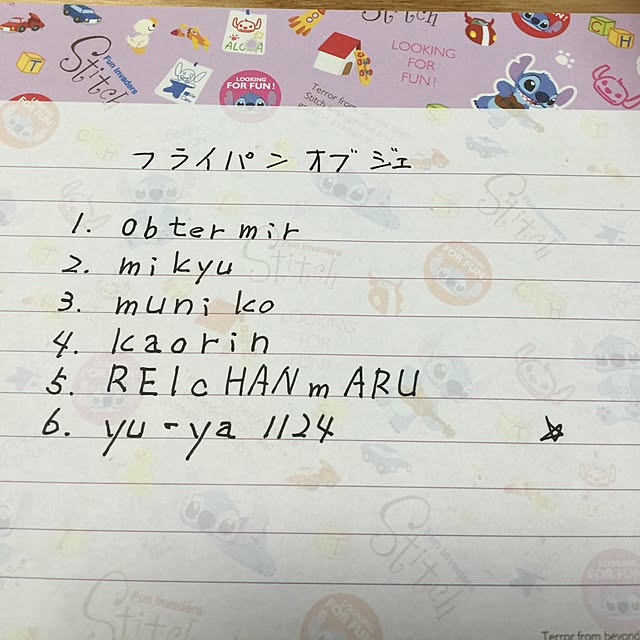 Stitch
Fun Invaders
Stitch
ALOHA
LOOKING
FOR FUN!
LOOKING
FOR
FUN!
Terror from
フライパン オブジェ
1. obtermir
2. mikyu
3. muniko
4. kaorin
5. REIcHANmARU
6. yu-ya 1124
Fun Invaders
Stitch
Stitch
LOOKING
FOR
FUN!
Stitch
Fun Invaders
Stitch
Terror from beyond